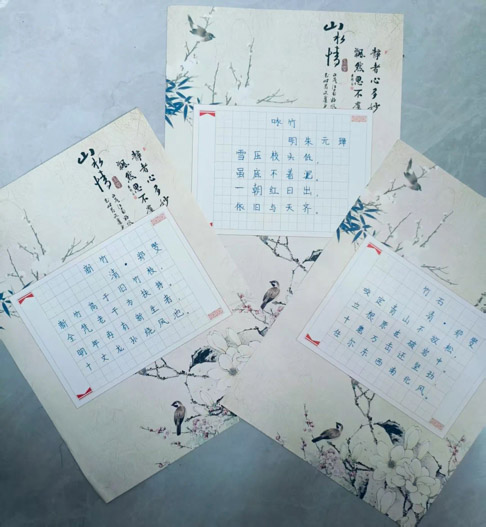 山水情
静者心多妙
飘然思不群
咏竹
明 朱元璋
雪压枝头低,
虽低不着泥。
一朝红日出,
依旧与天齐。
山水情
静者心多妙
飘然思不群
新竹
清·郑燮
新竹高于旧竹枝,
全凭老干为扶持。
明年再有新生者,
十丈龙孙绕凤池。
竹石
清·郑燮
咬定青山不放松,
立根原在破岩中。
千磨万击还坚劲,
任尔东西南北风。